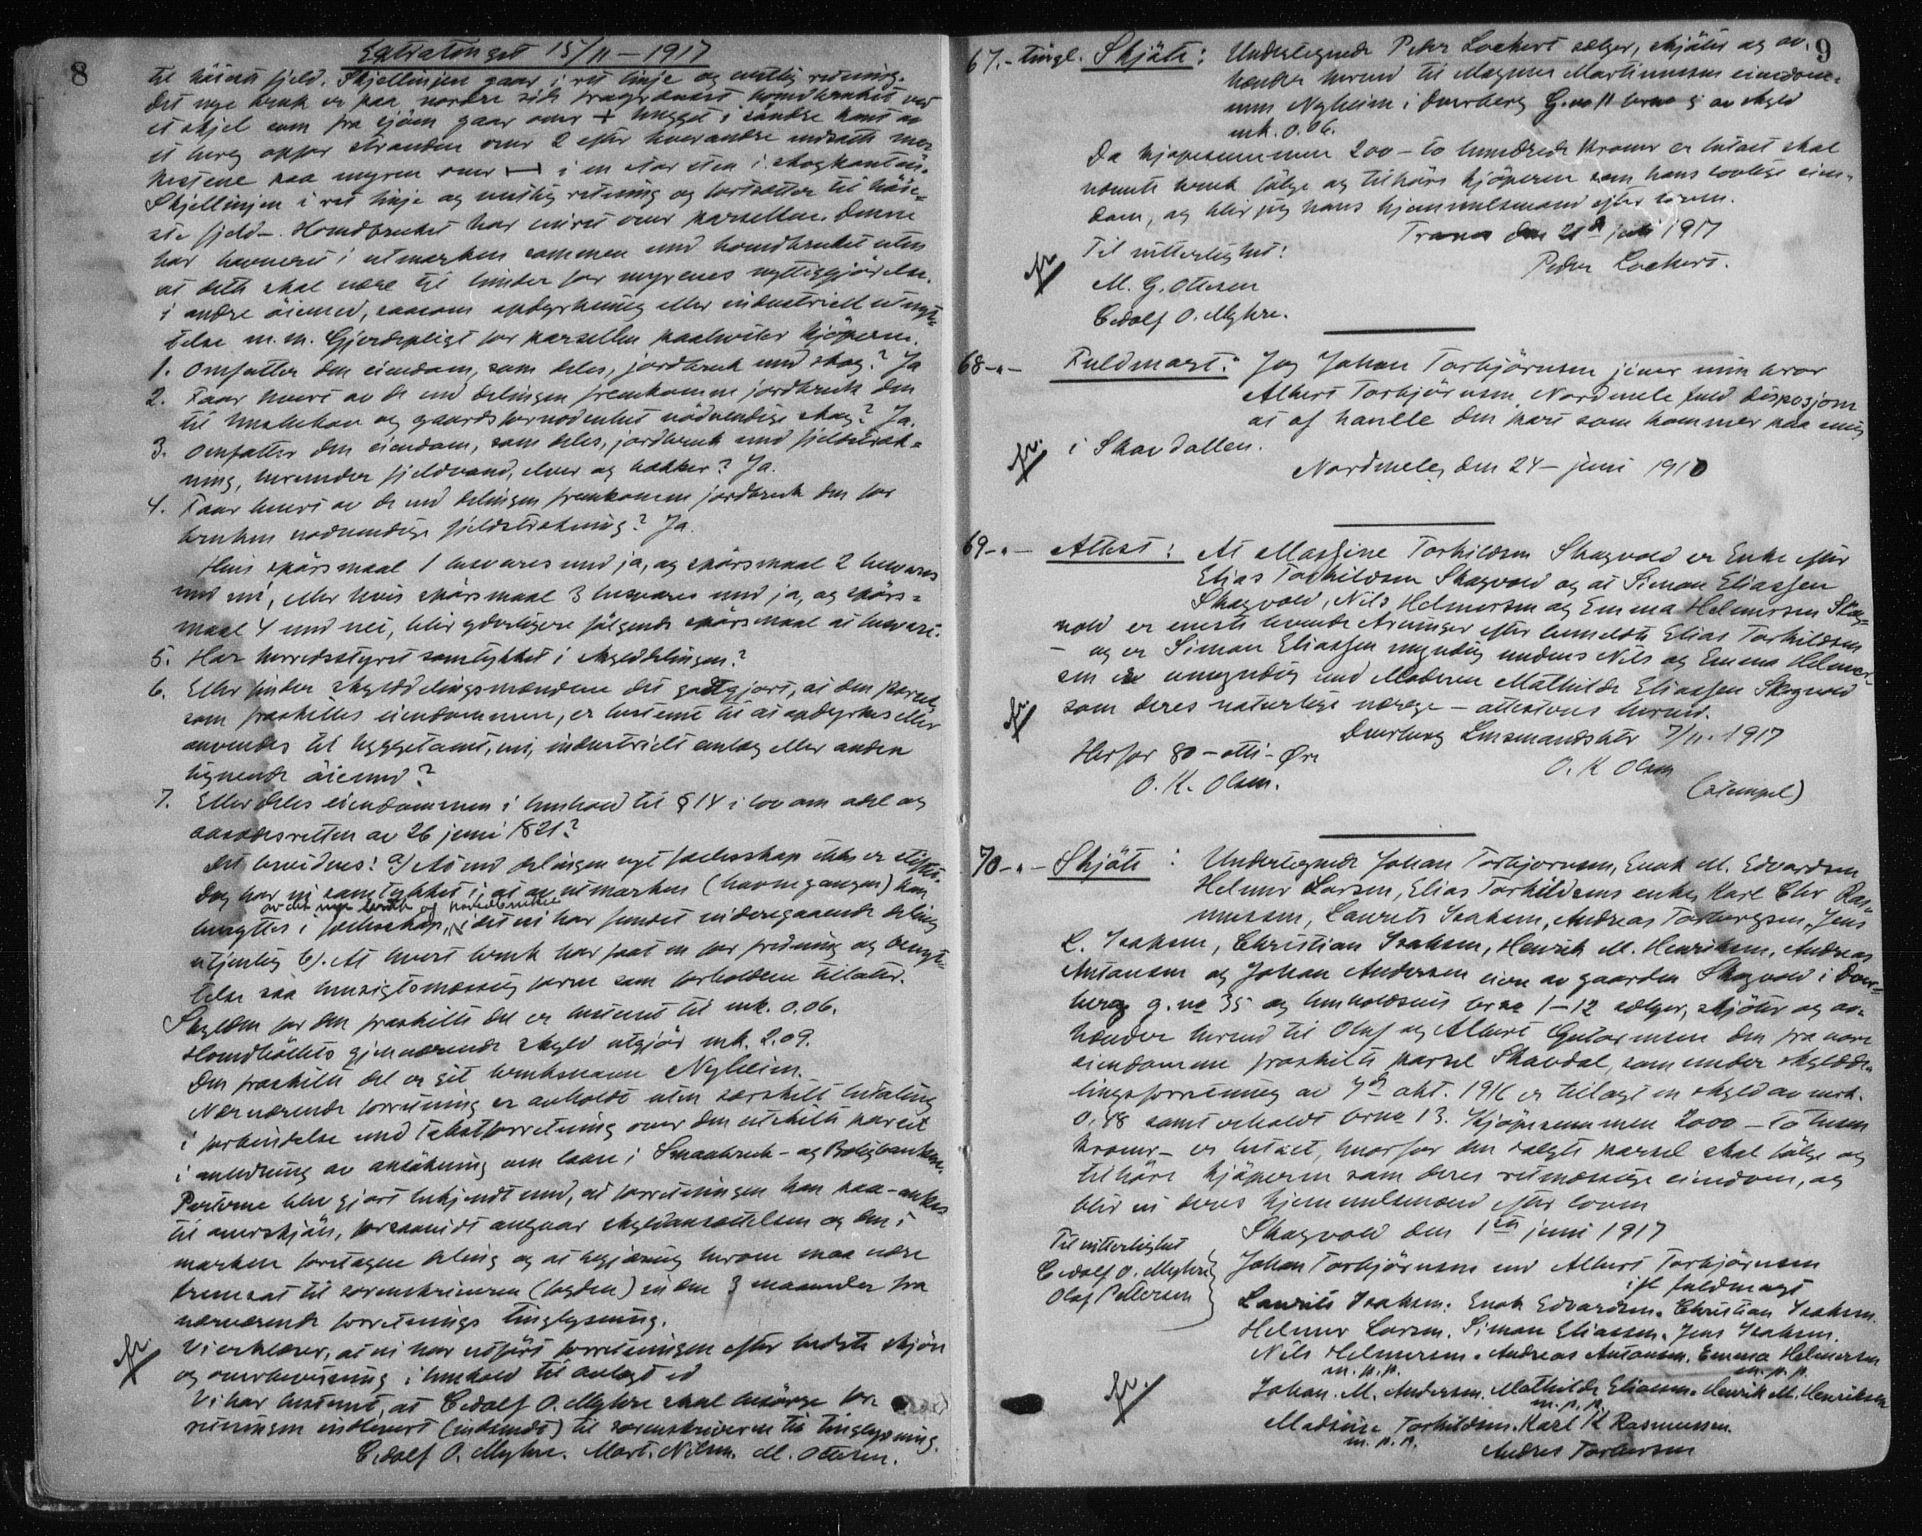 8
Extratinget 15/11 – 1917
til höieste fjeld. Skjellinjen gaar i ret linje og vestlig retning.
Det nye bruk er paa nordre side begrænset hovedbruket ved
et skjel som fra sjöen gaar over + hugget i söndre kant av
et berg oppfor stranden over 2 efter hverandre nedsatte mer
kestene paa myren over i en stor sten i skogkanten.
Skjellinjen i ret linje og vestlig retning og fortsætter til höie-
ste fjeld. Hovedbruket har veiret over parsellen. Denne
har havneret i utmarken sammen med hovedbruket uten
at dette skal være til hinder for myrenes nyttiggjörelse
i andre öiemed, saasom opdyrkning eller industriell utnyt-
telse m.m. Gjerdepligt for parsellen paahviler kjöperen.
1. Omfatter den eiendom, som deles, jordbruk med skog? Ja
2. Faar hvert av de ved delingen fremkomne jordbruk den
til husbehov og gaardsfornödenhet nödvendige skog? Ja.
3. Omfatter den eiendom, som deles, jordbruk med fjeldstræk-
ning, herunder fjeldvand, elver og bækker? Ja.
4. Faar hvert av de ved delingen fremkomne jordbruk den for
bruken nödvendige fjeldstrækning? Ja
Hvis spörsmaal 1 besvares med ja, og spörsmaal 2 besvares
med nei, eller hvis spörsmaal 3 besvares med ja, og spörs-
maal 4 med nei, blir yderligere fölgende spörsmaal at besvare.
5. Har herredsstyret samtykket i skylddelingen?
6. Eller finder skylddelingsmændene det godtgjort, at den parcel
som fraskilles eiendommen, er bestemt til at opdyrkes eller
anvendes til byggetomt, vei, industrielt anlæg eller anden
lignende öiemed?
7. Eller deles eiendommen i henhold til § 14 i lov om odel og
aasædesretten av 26 juni 1821?
Det bevidnes: a) At ved delingen nyt fælesskap ikke er stiftet.
Dog har vi samtykket i, at av utmarken (havnegangen) kan
av det nye bruk og hovedbruket
benyttes i fællesskap, idet vi har fundet inderegaaende deling
utjenlig b). At hvert bruk har faat en for fredning og benyt-
telse saa hensigtsmæssig form som forholdene tillater.
Skylden for den fraskilte del er bestemt til mk. 0.06.
Hovedbölets gjenværende skyld utgjör mk. 2.09.
Den fraskilte del er git bruksnavn Nyheim.
Nærværende forretning er avholdt uten særskilt betaling
i forbindelse med takstforretning over den utskilte parcel
i anledning av ansökning om laan i Smaabruk- og Boligbanken.
Parterne blev gjort bekjendt med, at forretningen kan paa-ankes
til overskjön, forsaavidt angaar skyldansættelsen og den i
marken foretagne deling og at begjæring herom maa være
fremsat til sorenskriveren (byfoden) inden 3 maaneder fra
nærværende forretnings tinglysning.
Vi erklærer, at vi har utfört forretningen efter bedste skjön
og overbevisning i henhold til avlagt ed
Vi har bestemt, at Cedolf O. Myhre skal besörge for-
retningen indlevert (indsendt) til sorenskriveren til tinglysning.
Cedolf O. Myhre. Mart. Nilsen. M. Ottesen.
9
67.- tingl. Skjöte: Undertegnede Peder Lockert sælger, skjöter og av-
hænder herved til Magnus Martinussen eiendom-
men Nyheim i Dverberg G.no 11 brno 5 av skyld
mk. 0.06.
Da kjöpesummen 200 – to hundrede kroner er betalt skal
nævnte bruk fölge og tilhöre kjöperen som hans lovlige eien-
dom, og blir jeg hans hjemmelsmand efter loven.
Tranes den 21de juli 1917
Til vitterlighet: Peder Lockert.
M. G. Ottesen
Cedolf O. Myhre.
68-"- Fuldmagt: Jeg Johan Torbjörnsen jiver min bror
Albert Torbjörnsen Nordmele fuld disposjom
at af hanlle den part som kommer paa mig
i Skav Dallen.
Nordmeley den 24 – juni 1910
69-"- Attest: At Massine Torkildsen Skogvold er Enke efter
Elias Torkildsen Skogvold og at Simon Eliassen
Skogvold, Nils Helmersen og Emma Helmersen Skog-
vold er eneste levende Arvinger efter bemeldte Elias Torkildsen
– og er Simon Eliassen myndig medens Nils og Emma Helmer-
sen er umyndig med Moderen Mathilde Eliassen Skogvold
som deres naturlige værge – attesteres herved.
Dverberg Lensmandsbst 7/11. 1917
Herfor 80 – otti – Öre O. K Olsen
O. K. Olsen. (stempel)
70-"- Skjöte: Undertegnede Johan Torbjörnsen, Enok M. Edvardsen
Helmer Larsen, Elias Torkildsens enke, Karl Chr Ras-
mussen, Laurits Isaksen, Andreas Torbergsen, Jens
L. Isaksen, Christian Isaksen, Henrik M. Henriksen, Andreas
Antonsen og Johan Andersen eiere av gaarden Skogvold i Dver-
berg g. no 35 og henholdsvis brno 1–12 sælger, skjöter og av-
hænder herved til Oluf og Albert Gutormsen den fra vore
eiendomme fraskilte parsel Skavdal, som under skylde-
lingsforretning av 7de okt. 1916 er tillagt en skyld av mrk.
0,18 samt erholdt brno 13. Kjöpesummen 2000 – To tusen
kroner – er betalt, hvorfor den solgte parsel skal fölge og
tilhöre kjöperen som deres retmæssige eiendom, og
blir vi deres hjemmelsmænd efter loven
Skogvold den 1ste juni 1917
Til vitterlighet
Cedolf O. Myhre
Olaf Pettersen
Johan Torbjörnsen ved Albert Torbjörnsen
ifl fuldmagt
Laurits Isaksen. Enok Edvardsen. Christian Isaksen.
Helmer Larsen. Simon Eliassen. Jens Isaksen.
Nils Helmersen. Andreas Antonsen. Emma Helmersen
m.p.p. m.p.p.
Johan. M. Andersen. Mathilde Eliassen. Henrik M. Henriksen
m.p.p.
Madsine Torkildsen. Karl K Rasmussen.
m.p.p.
Andres Torbersen